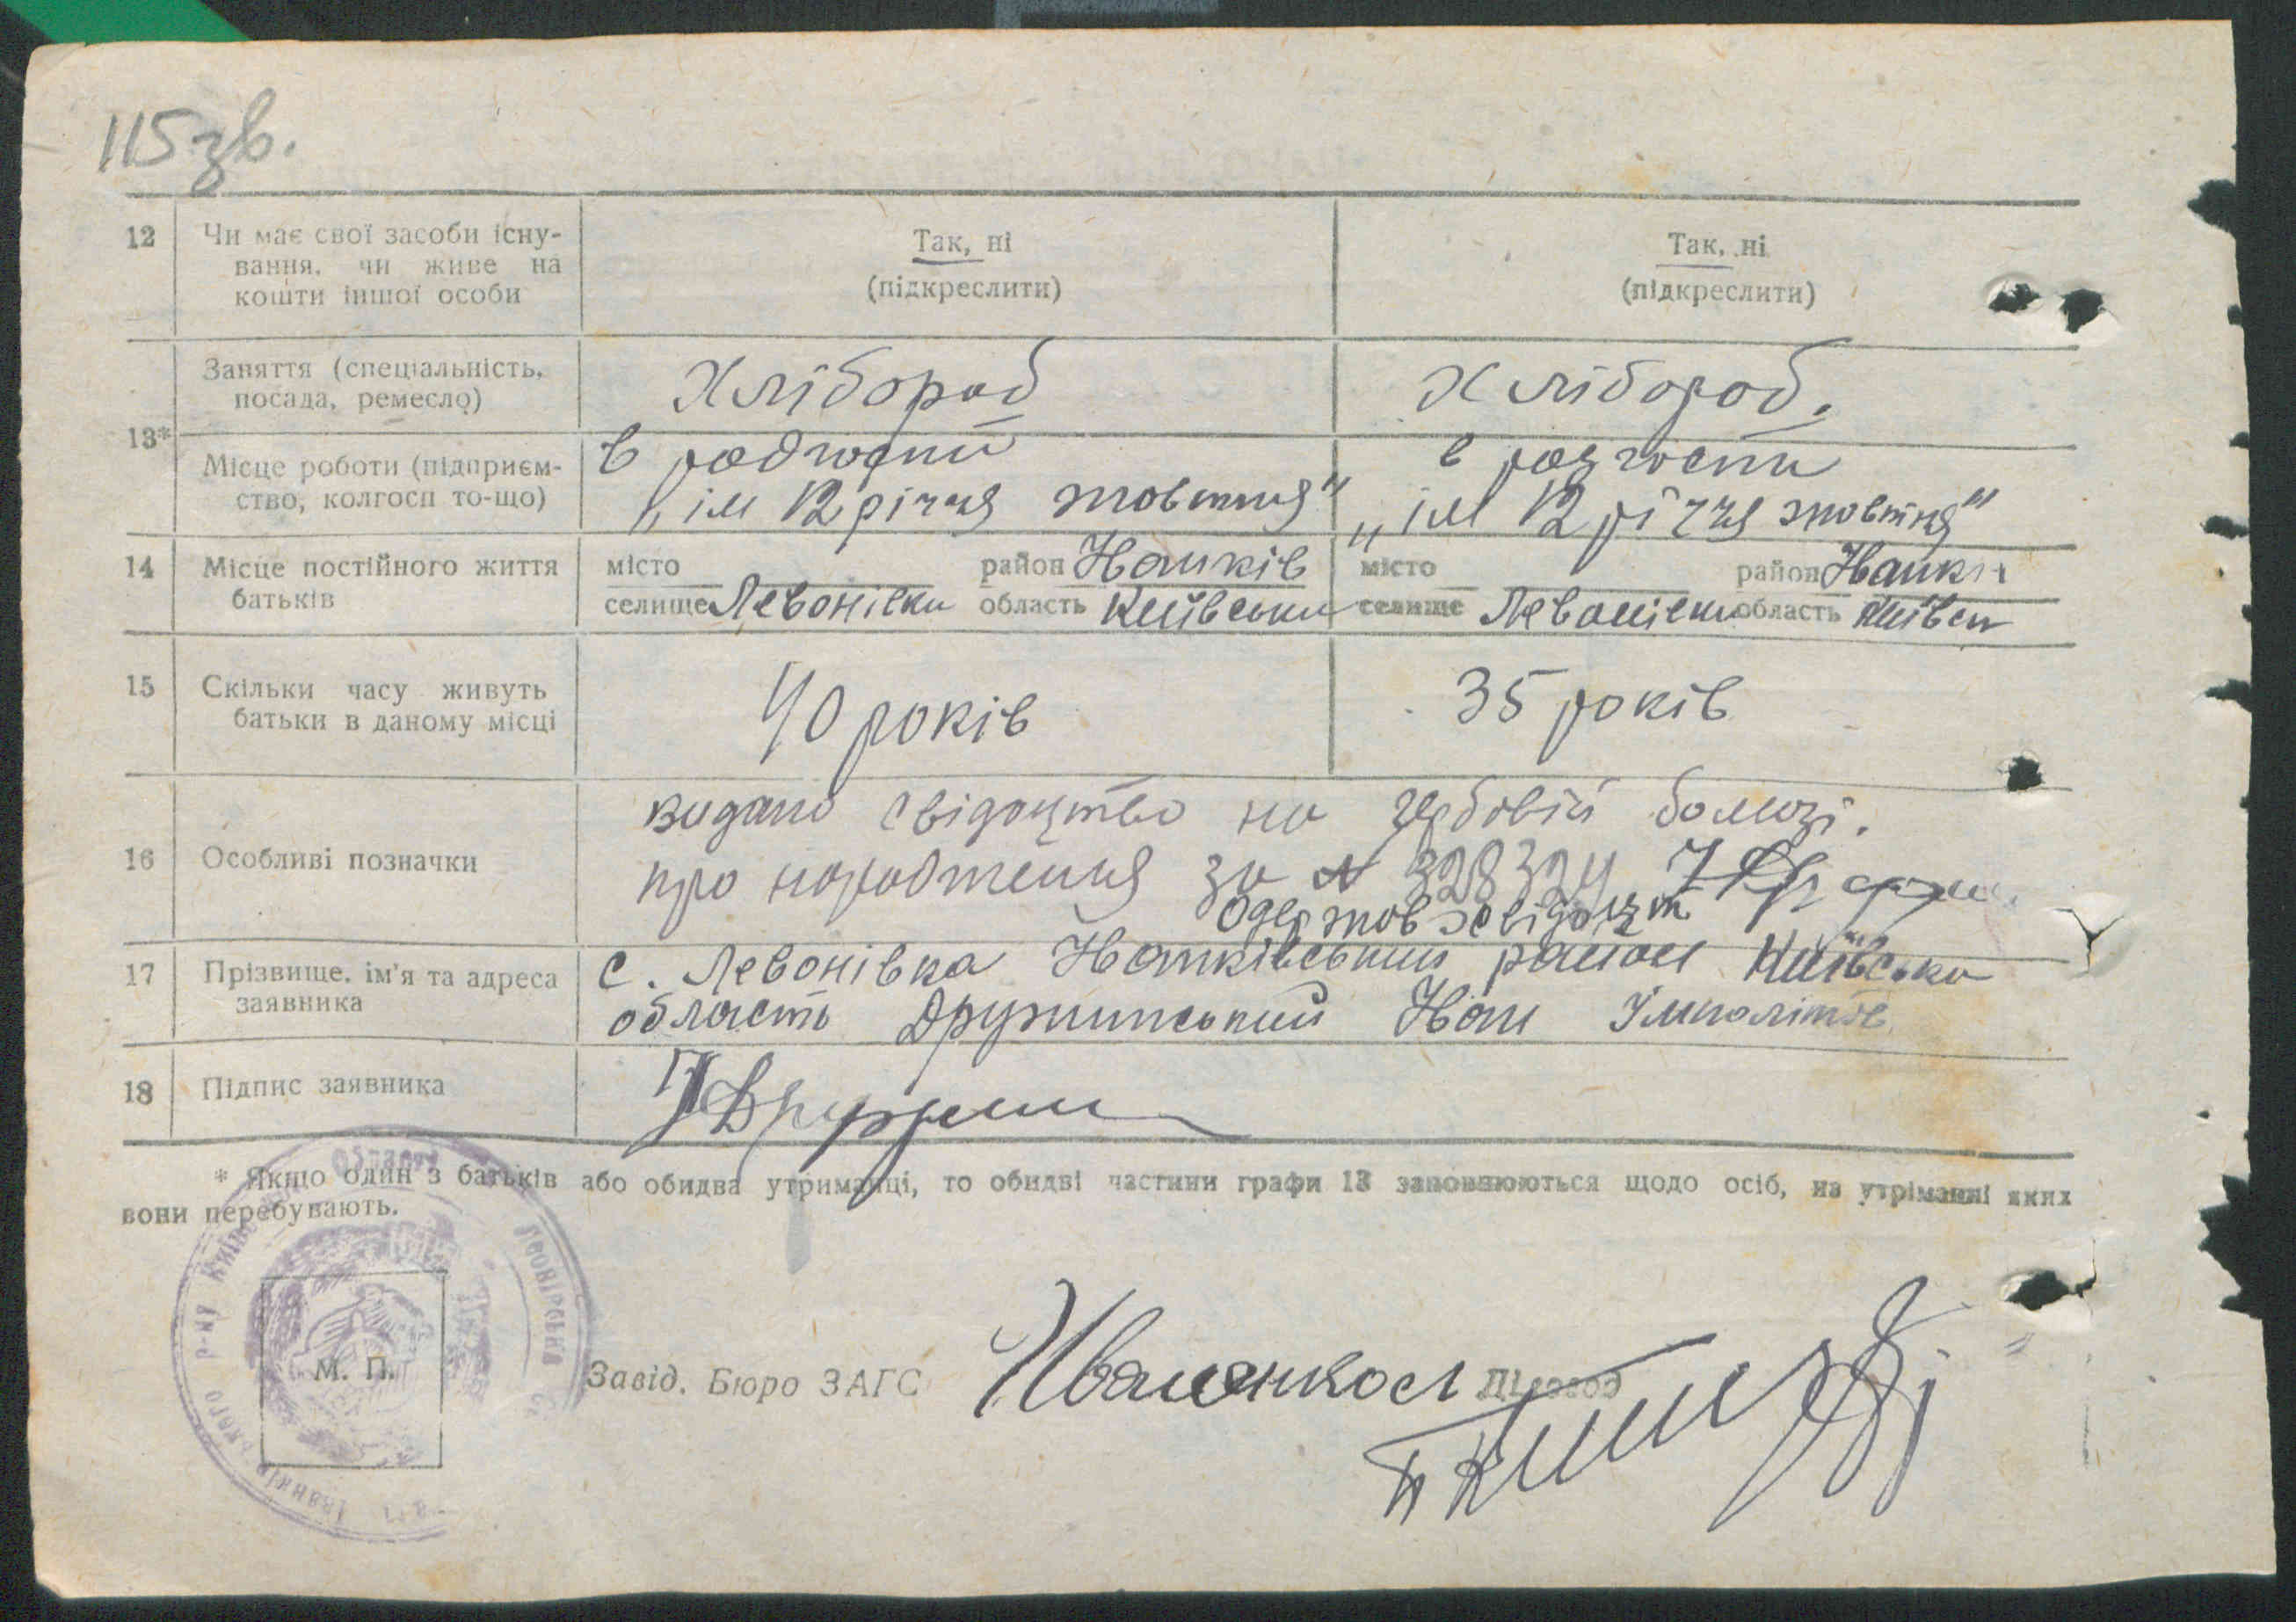 115 зв.
12 Чи має свої засоби існу- Так, ні Так, ні
вання, чи живе на (підкреслити) (підкреслити)
кошти іншої особи
13* Заняття (спеціальність, Хлібороб Хлібороб.
посада, ремесло)
Місце роботи (підприєм- в радгоспи в радгоспи
ство, колгосп то-що) „ім 12 річчя жовтня" „ім 12 річчя жовтня"
14 Місце постійного життя місто район Іванків місто район
батьків селище Левонівки область Київськи селище Левонівки область Київсп
15 Скільки часу живуть 40 років 35 років
батьки в даному місці
16 Особливі позначки видано свідоцтво на гербовій бомозі.
про народження за № 328324
Одержав свідоцт
17 Прізвище, ім'я та адреса с. Левонівка Іванківський район Київська
заявника область Дружинський Іван
18 Підпис заявника
* Якщо один з батьків або обидва утриманці, то обидві частини графи 13 заповнюються щодо осіб, на утріманні яких
вони перебувають.
М. П.
Завід. Бюро ЗАГС Діловод